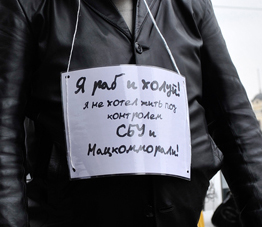 Я раб и холуй!
я не хотел жить под
контролем
СБУ и
Нацкомморали!